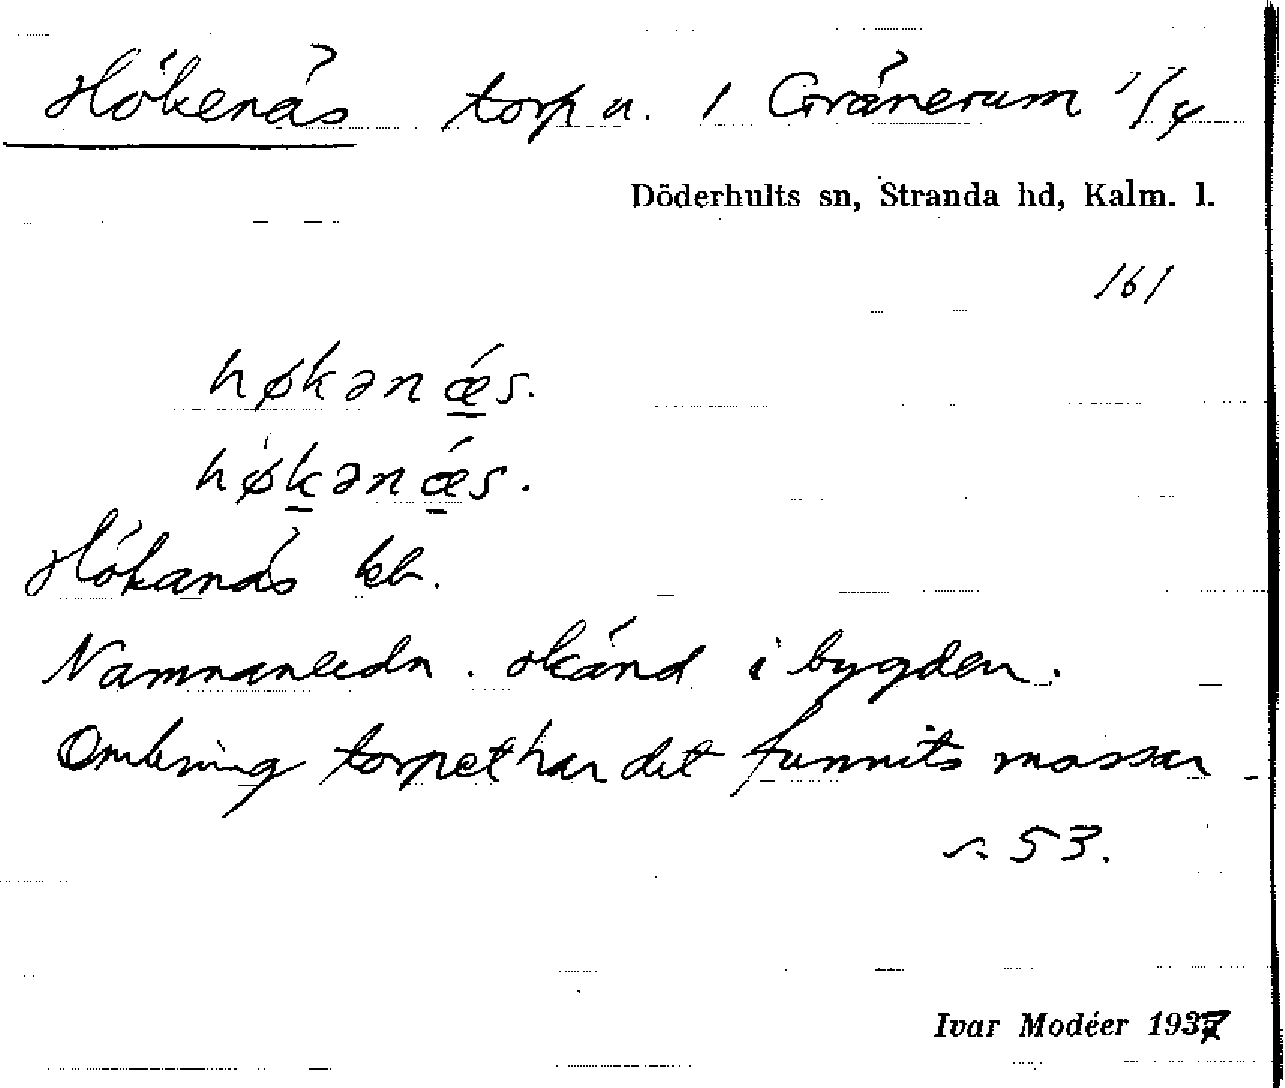 Hökenäs torp u. 1 Gränerum 1/4
Döderhults sn, Stranda hd, Kalm. l.
161
høkənǽs.
hø̍kənǽs.
Hökanäs kb.
Namnanledn. okänd i bygden.
Omkring torpet har det funnits mossar
s. 53.
Ivar Modéer 1937